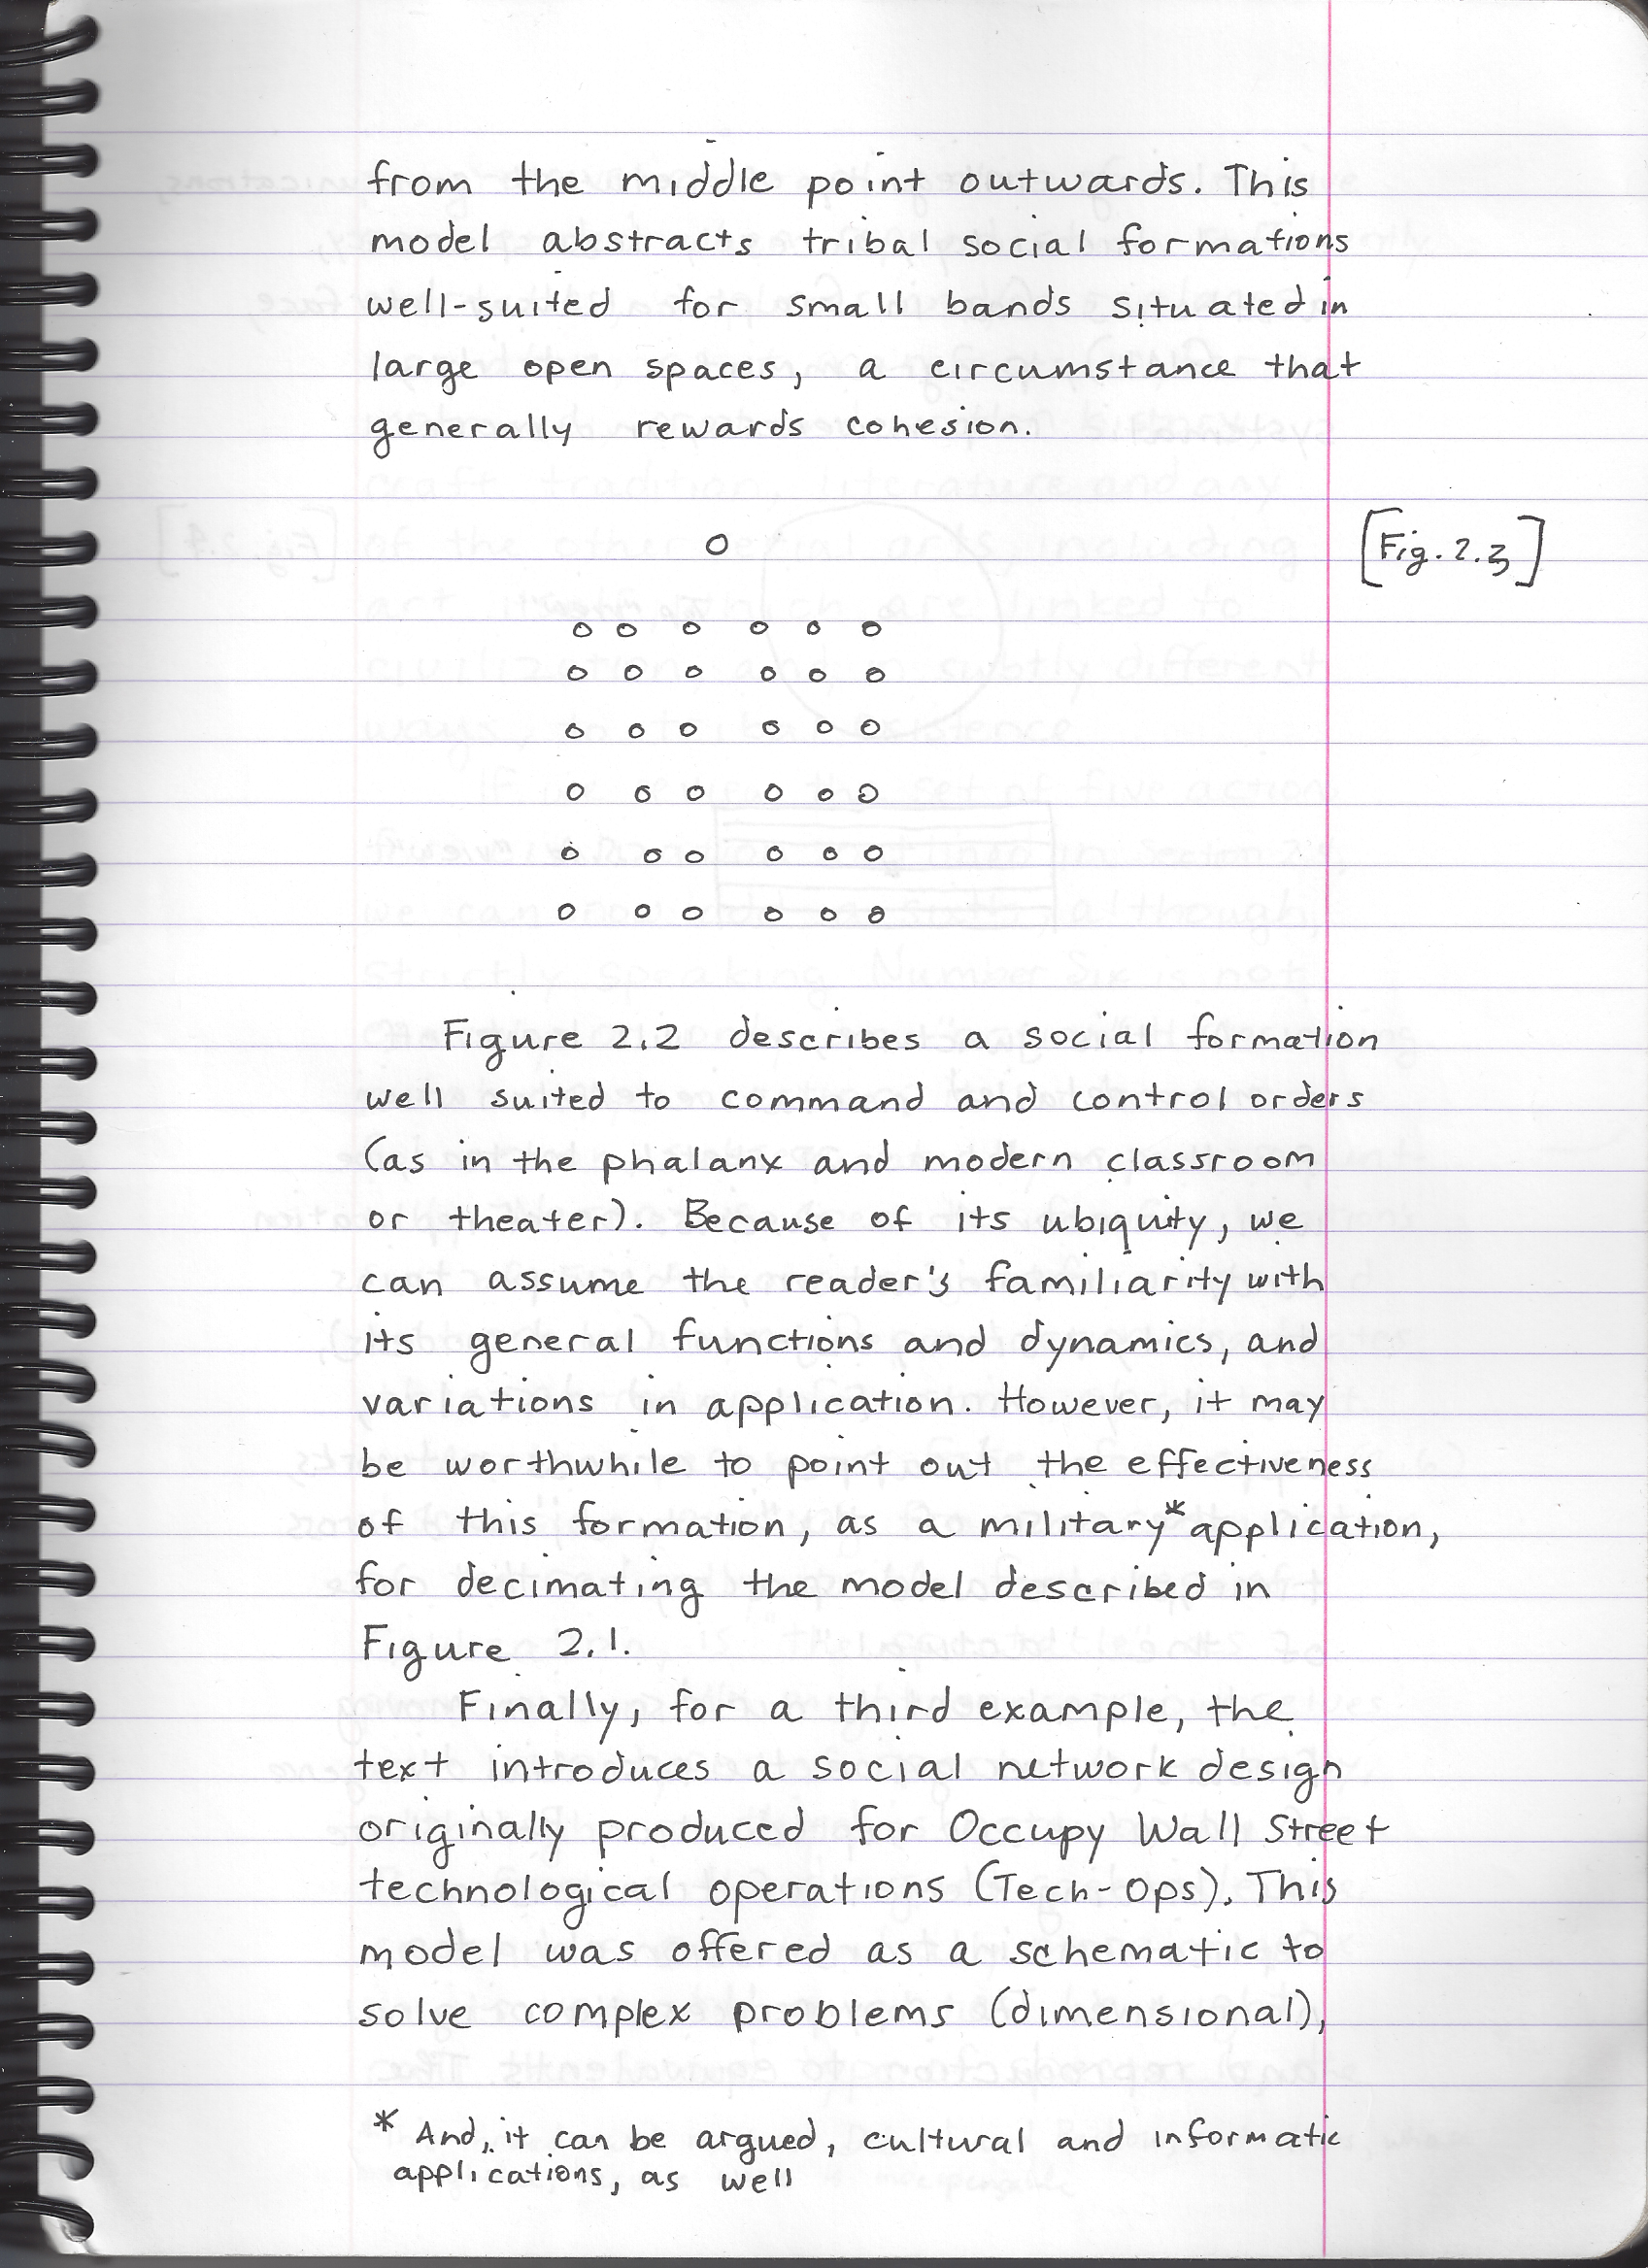 from the middle point outwards. This
model abstracts tribal social formations
well-suited for small bands situated in
large open spaces, a circumstance that
generally rewards cohesion.
[Fig. 2.3]
Figure 2.2 describes a social formation
well suited to command and control orders
(as in the phalanx and modern classroom
or theater). Because of its ubiquity, we
can assume the reader's familiarity with
its general functions and dynamics, and
variations in application. However, it may
be worthwhile to point out the effectiveness
of this formation, as a military* application,
for decimating the model described in
Figure 2.1.
Finally, for a third example, the
text introduces a social network design
originally produced for Occupy Wall Street
technological operations (Tech-Ops). This
model was offered as a schematic to
solve complex problems (dimensional),
* And, it can be argued, cultural and informatic
applications, as well